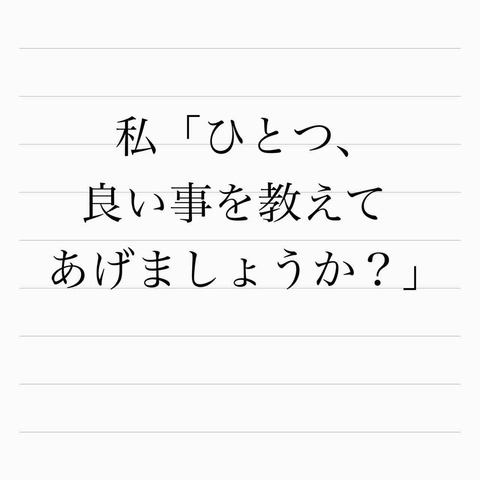 私「ひとつ、
良い事を教えて
あげましょうか？」